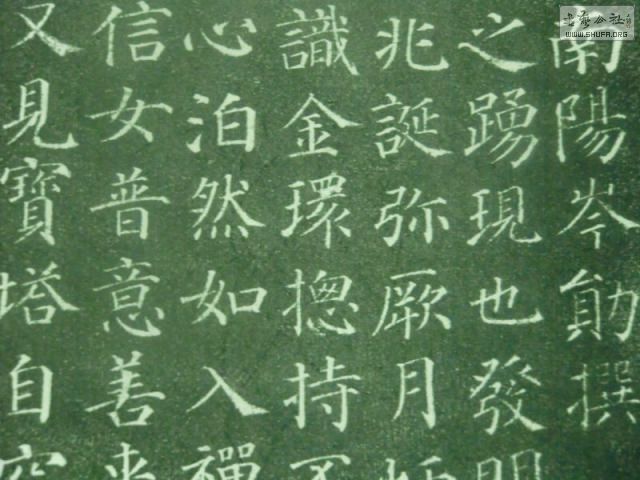 南陽岑勛撰
之踴現也發明
兆誕弥厥月炳
識金環揔持不
心泊然如入禪
信女普意善來
又見寶塔自空
書法公社
WWW.SHUFA.ORG